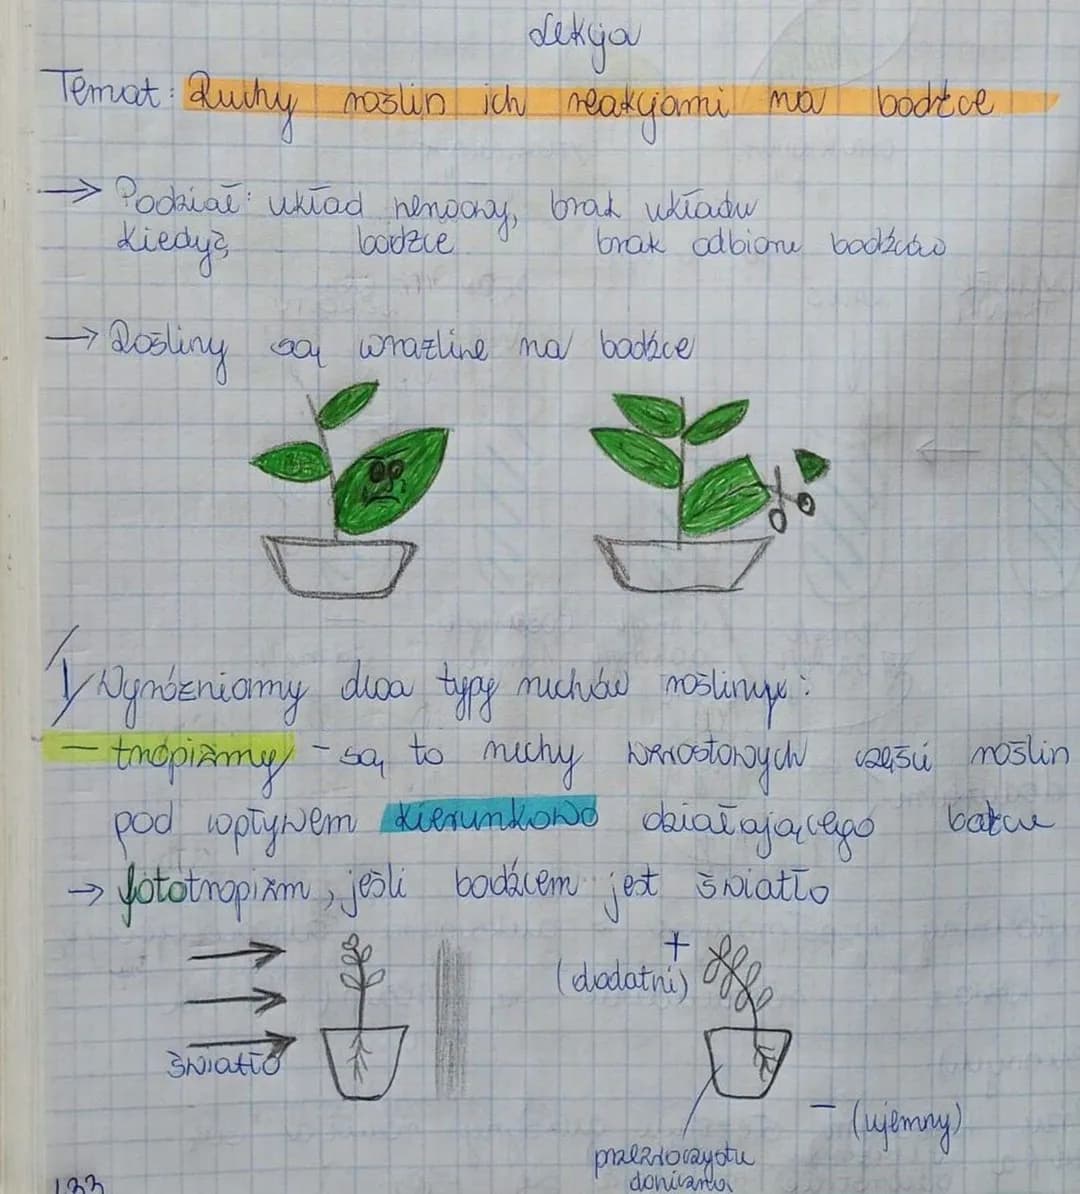 Lekcja
Temat: Ruchy roślin ich reakcjami na bodźce
→ Podział: układ nerwowy, brak układu
Kiedyś bodźce brak odbioru bodźców
→ Rośliny są wrażliwe na bodźce
1) Wyróżniamy dwa typy ruchów roślinnych:
- tropizmy - są to ruchy wzrostowych części roślin
pod wpływem kierunkowo działającego bodźca
→ fototropizm, jeśli bodźcem jest światło
+
(dodatni)
światło
- (ujemny)
przezroczysta
doniczka
133